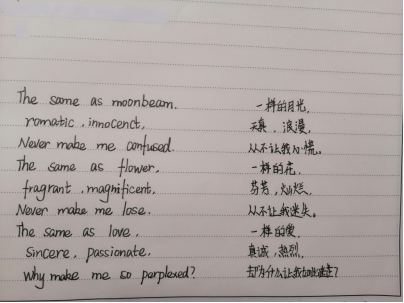 The same as moonbeam.
romatic, innocenct,
Never make me confused.
The same as flower,
fragrant, magnificent,
Never make me lose.
The same as love,
sincere, passionate,
Why make me so perplexed?
一样的月光,
天真、浪漫,
从不让我心慌。
一样的花,
芬芳,灿烂,
从不让我迷失。
一样的爱,
真诚,热烈,
却为什么让我如此迷茫?